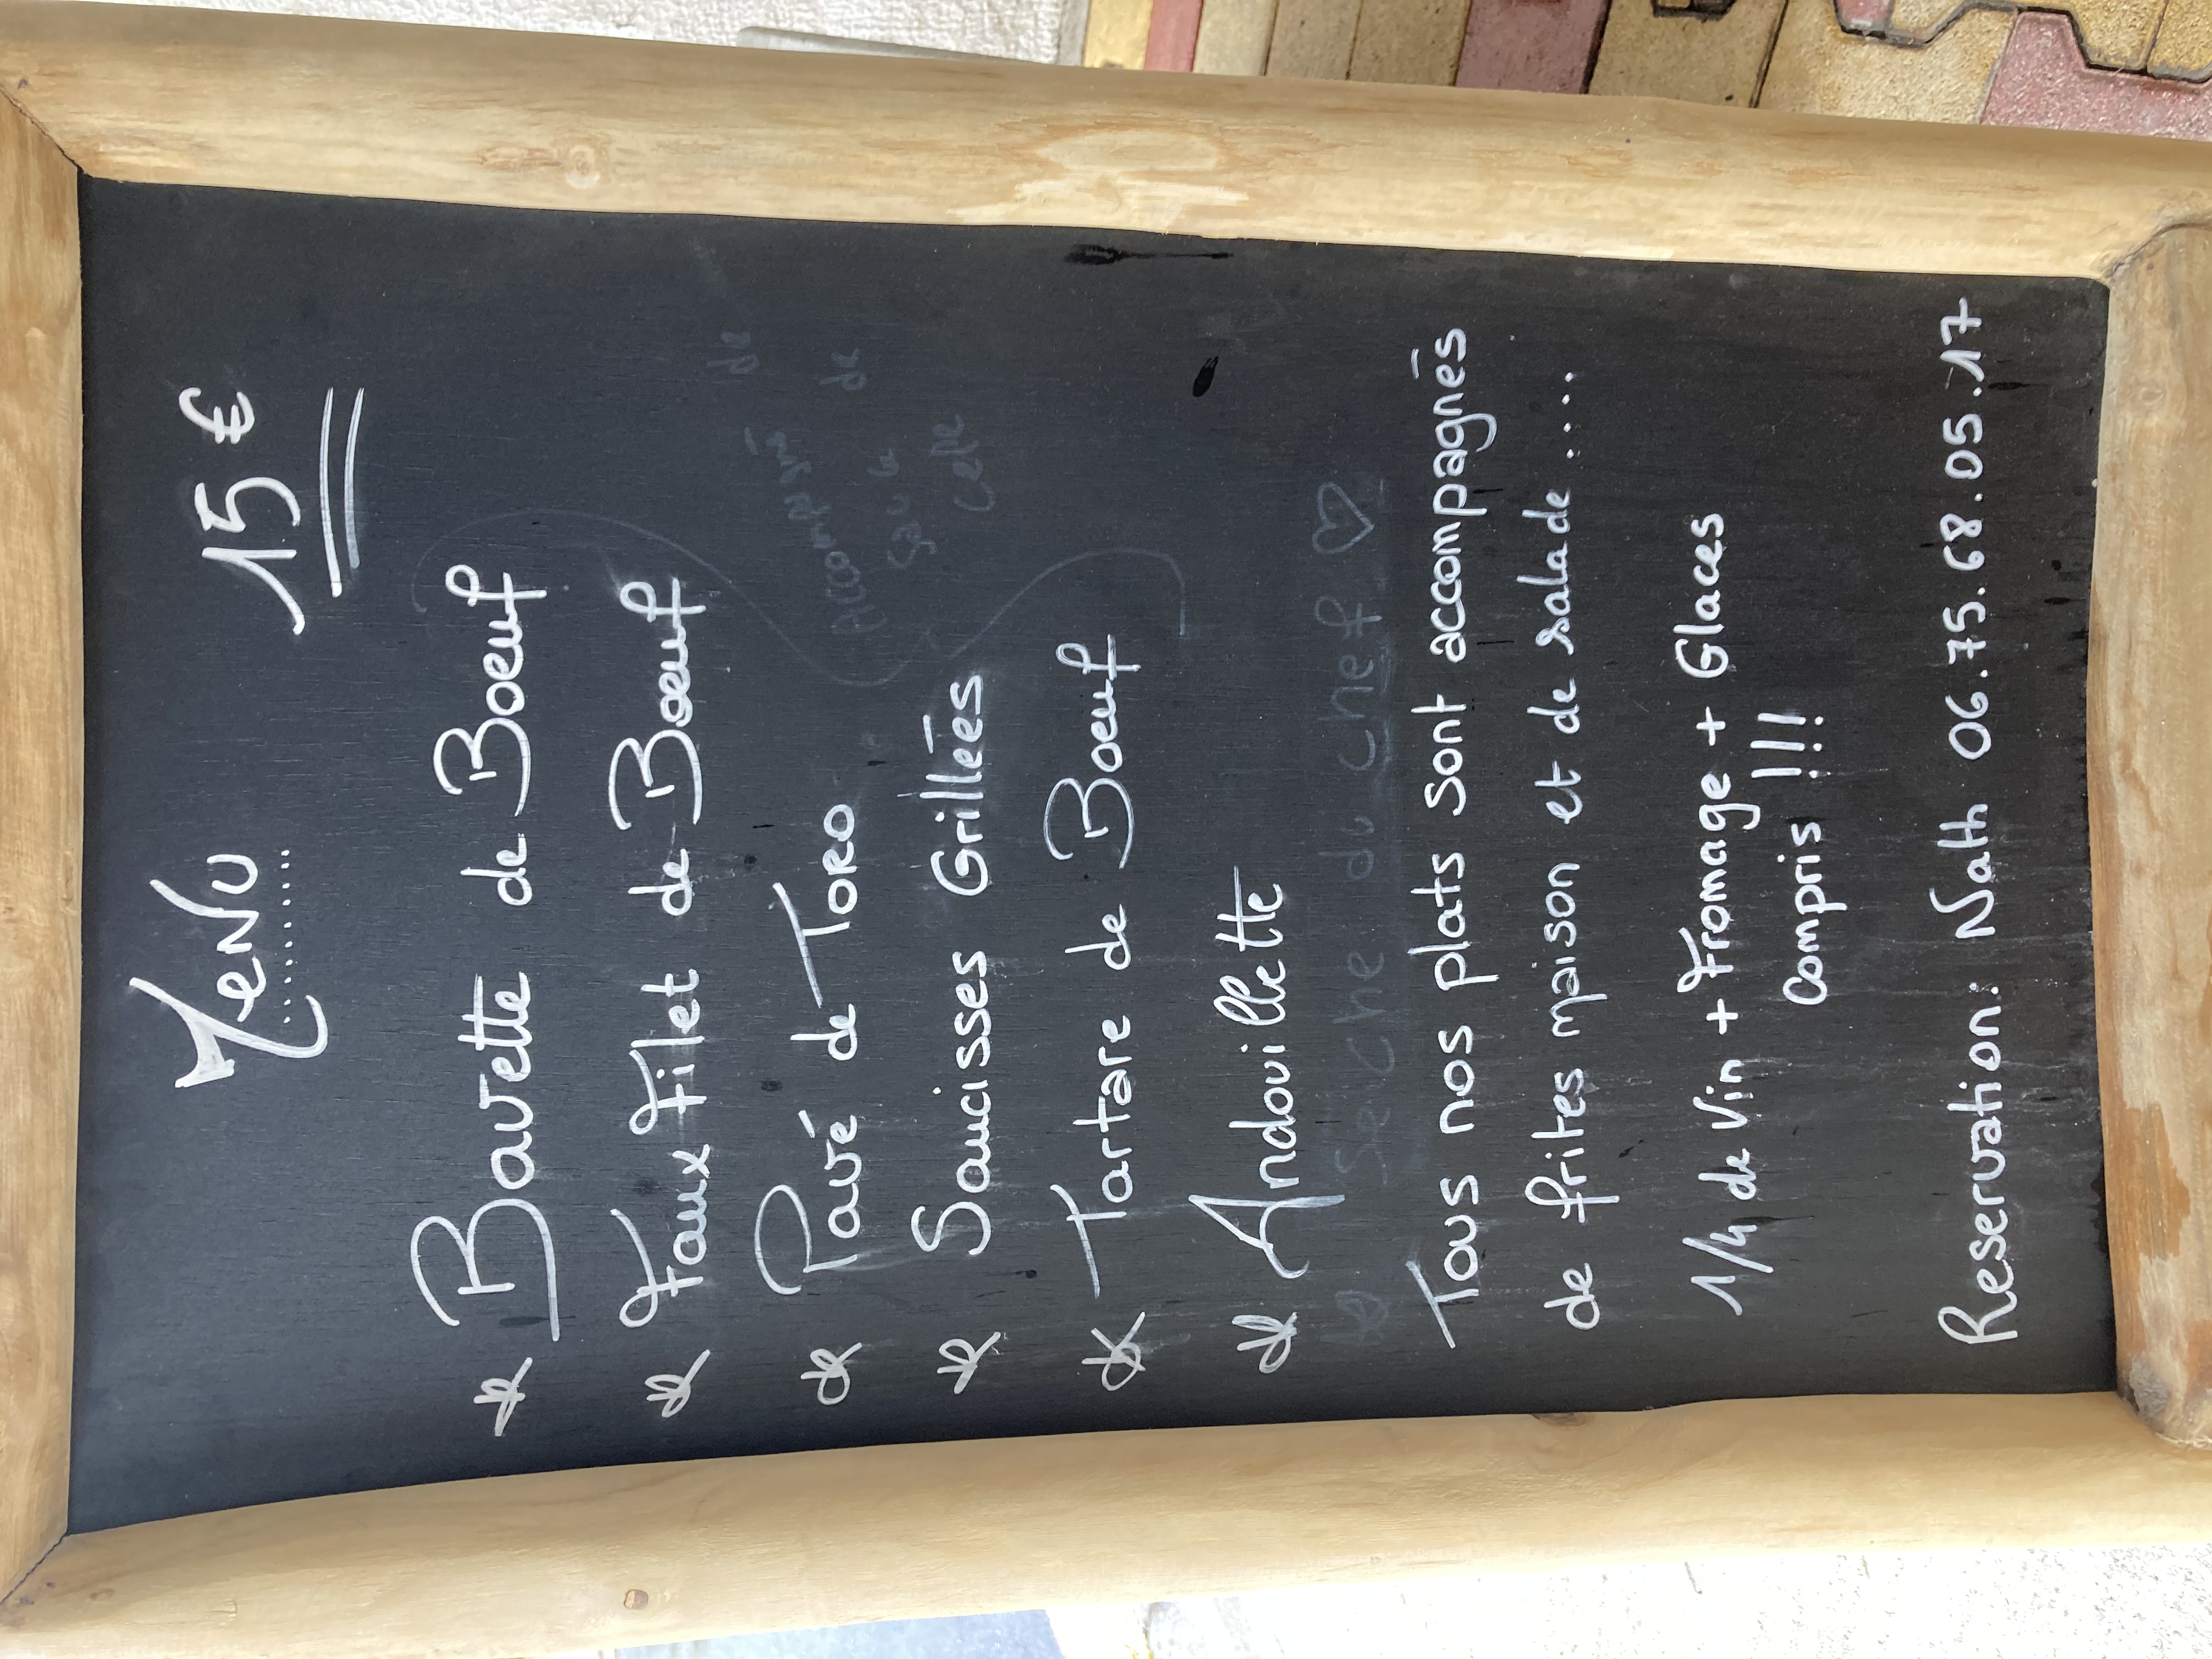 Menu 15 €
* Bavette de Boeuf
* Faux Filet de Boeuf
* Pavé de Toro
* Saucisses Grillées
* Tartare de Boeuf
* Andouillette
* Seiche du chef ♡
Tous nos plats sont accompagnés
de frites maison et de salade.....
1/4 de Vin + Fromage + Glaces
compris !!!
Reservation: Nath 06.75.68.05.17